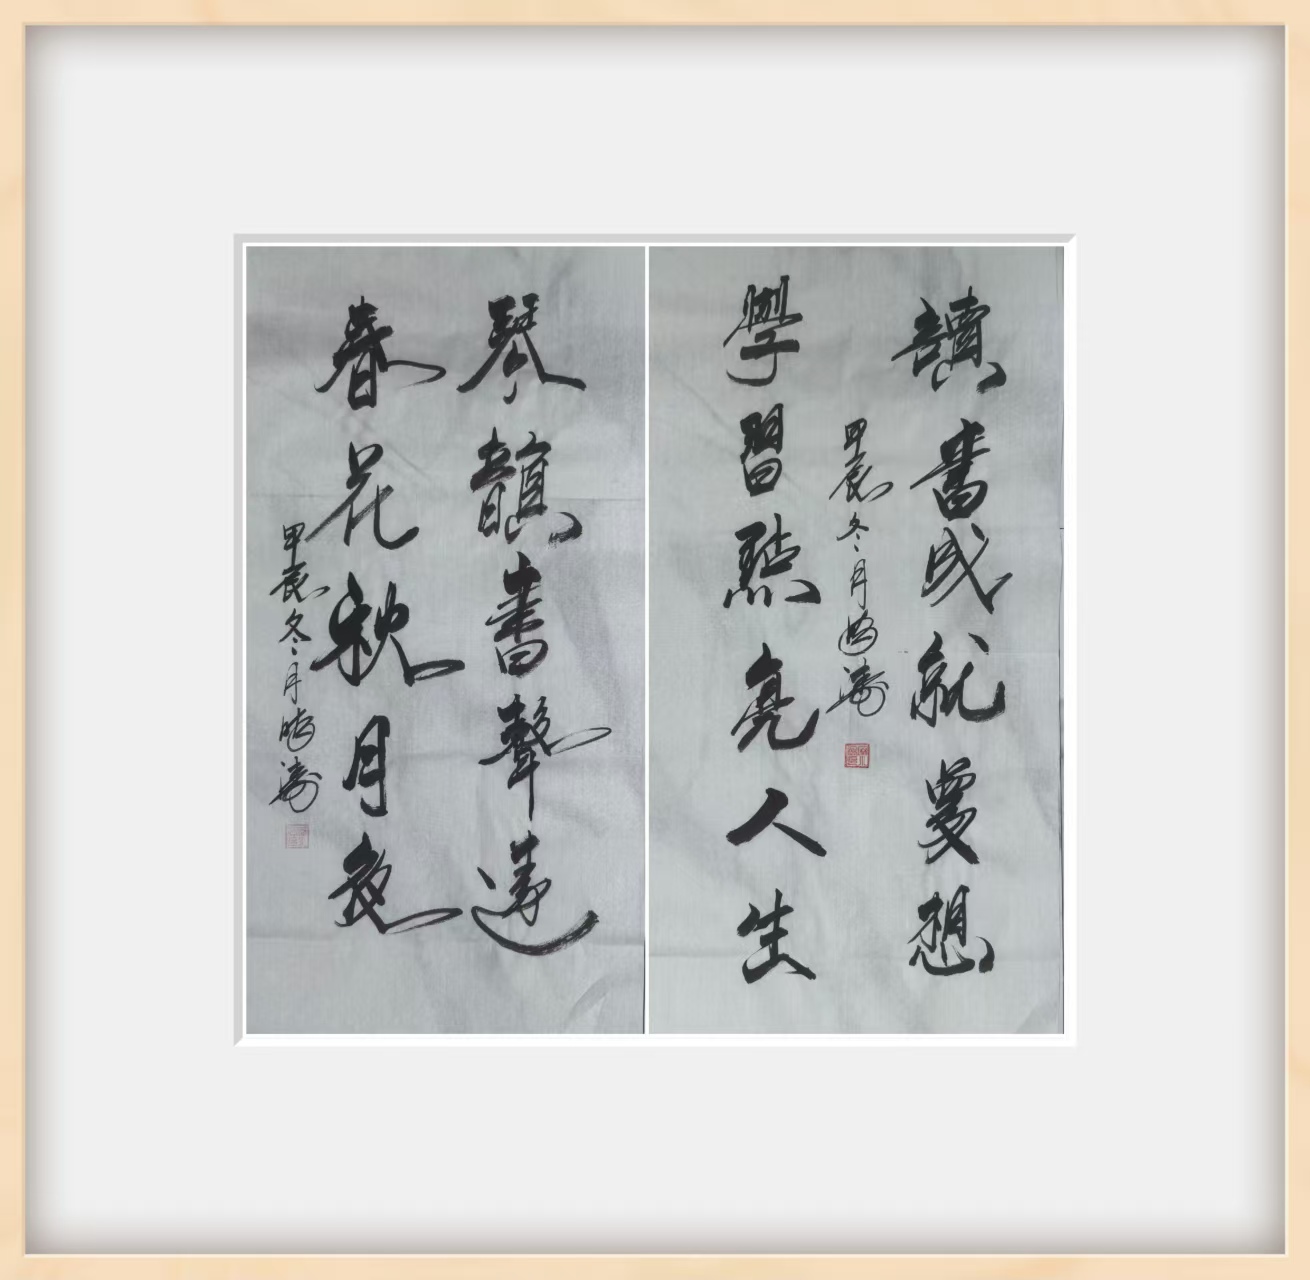 讀書成就夢想
甲辰冬月 濤
學習點亮人生
琴韻書聲
春花秋月
甲辰冬月 濤